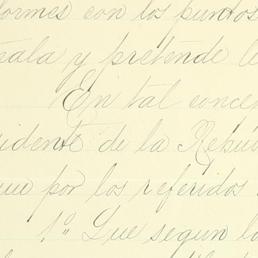 formes con los puntos
pala y pretende le
En tal concep
sidente de la Repú
que por los referidos
1.º Que segun lo